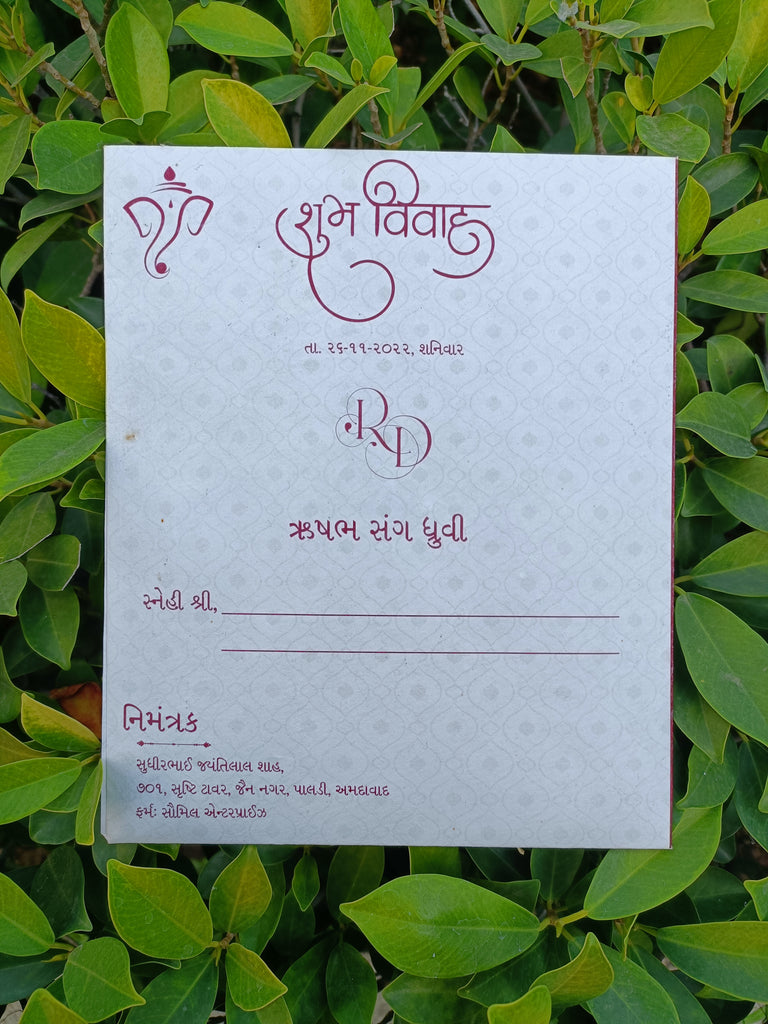 શુભ વિવાહ
તા. ૨૬-૧૧-૨૦૨૨, શનિવાર
RD
ઋષભ સંગ ધ્રુવી
સ્નેહી શ્રી,
નિમંત્રક
સુધીરભાઈ જયંતિલાલ શાહ,
૭૦૧, સૃષ્ટિ ટાવર, જૈન નગર, પાલડી, અમદાવાદ
ફર્મઃ સૌમિલ એન્ટરપ્રાઈઝ